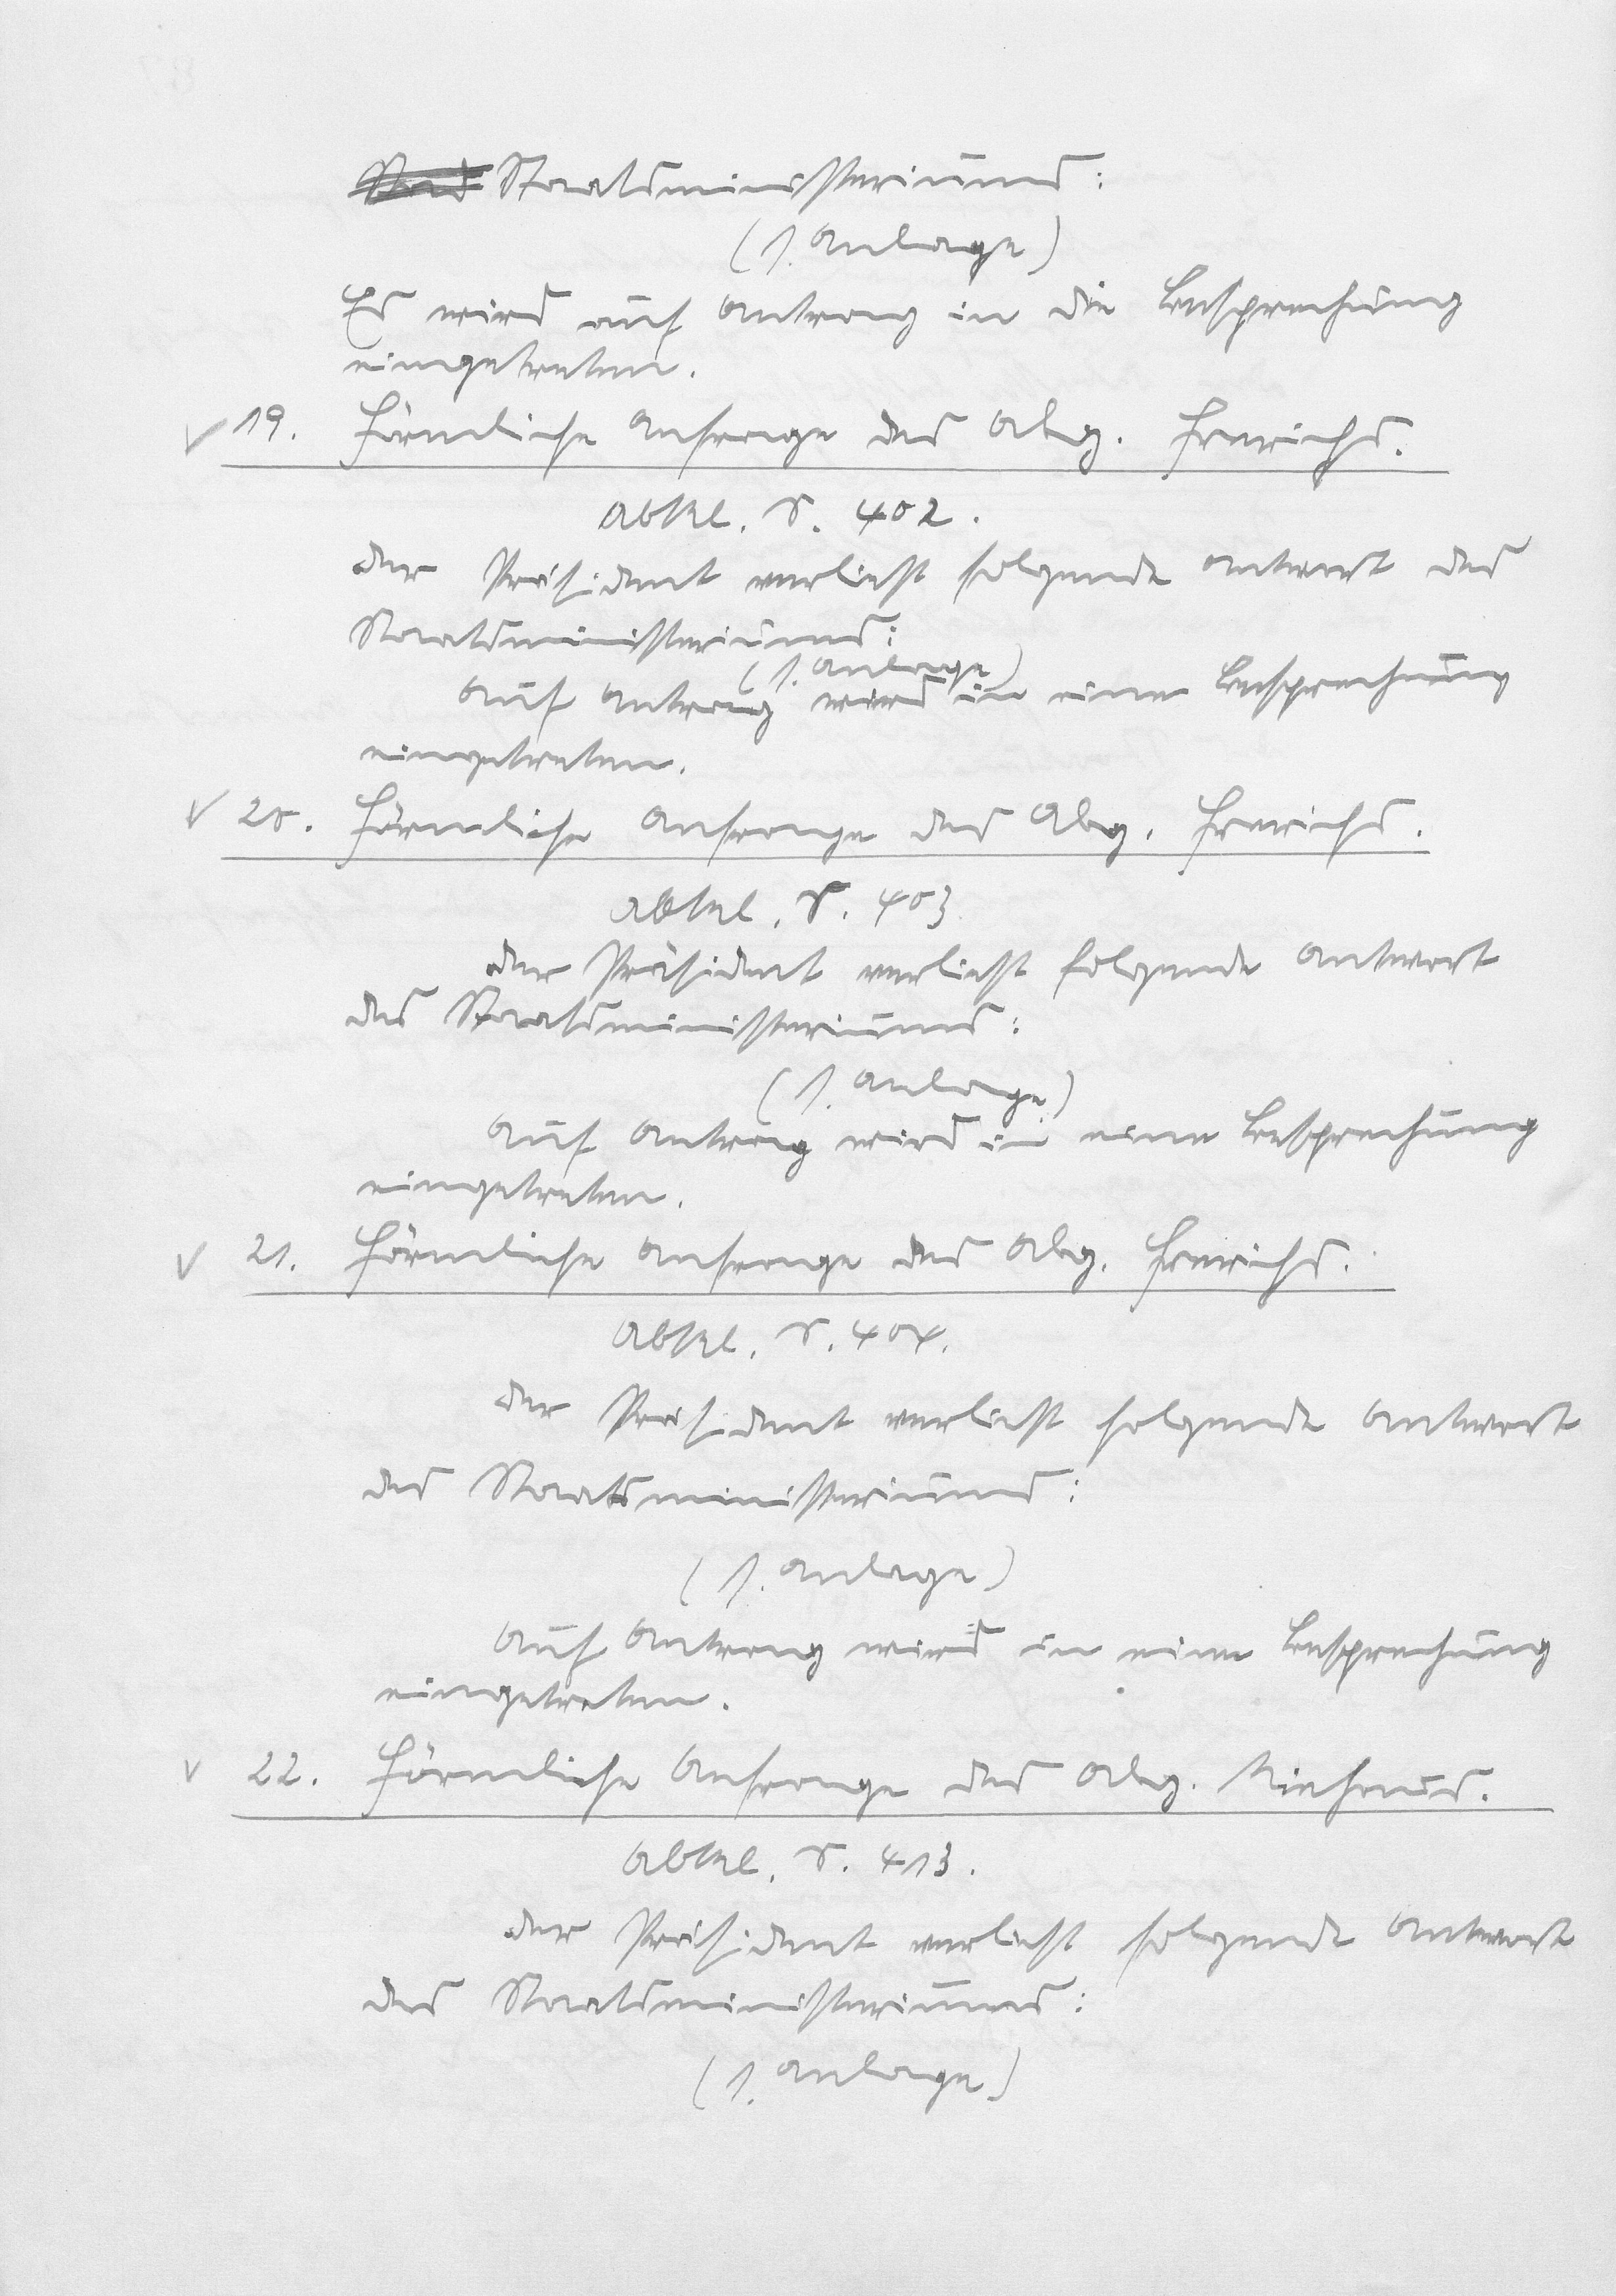 Staatsministeriums:
(s. Anlage)
Es wird auf Antrag in die Besprechung
eingetreten.
19. Förmliche Anfrage des Abg. Frerichs.
Abkl. S. 402.
der Präsident verliest folgende Antwort des
Staatsministeriums:
(s. Anlage)
Auf Antrag wird in eine Besprechung
eingetreten.
20. Förmliche Anfrage des Abg. Frerichs.
Abkl. S. 403
der Präsident verliest folgende Antwort
des Staatsministeriums:
(s. Anlage)
Auf Antrag wird in eine Besprechung
eingetreten.
21. Förmliche Anfrage des Abg. Frerichs.
Abkl. S. 404.
der Präsident verliest folgende Antwort
des Staatsministeriums:
(s. Anlage)
Auf Antrag wird in eine Besprechung
eingetreten.
22. Förmliche Anfrage des Abg.
Abkl. S. 413.
der Präsident verliest folgende Antwort
des Staatsministeriums:
(s. Anlage)